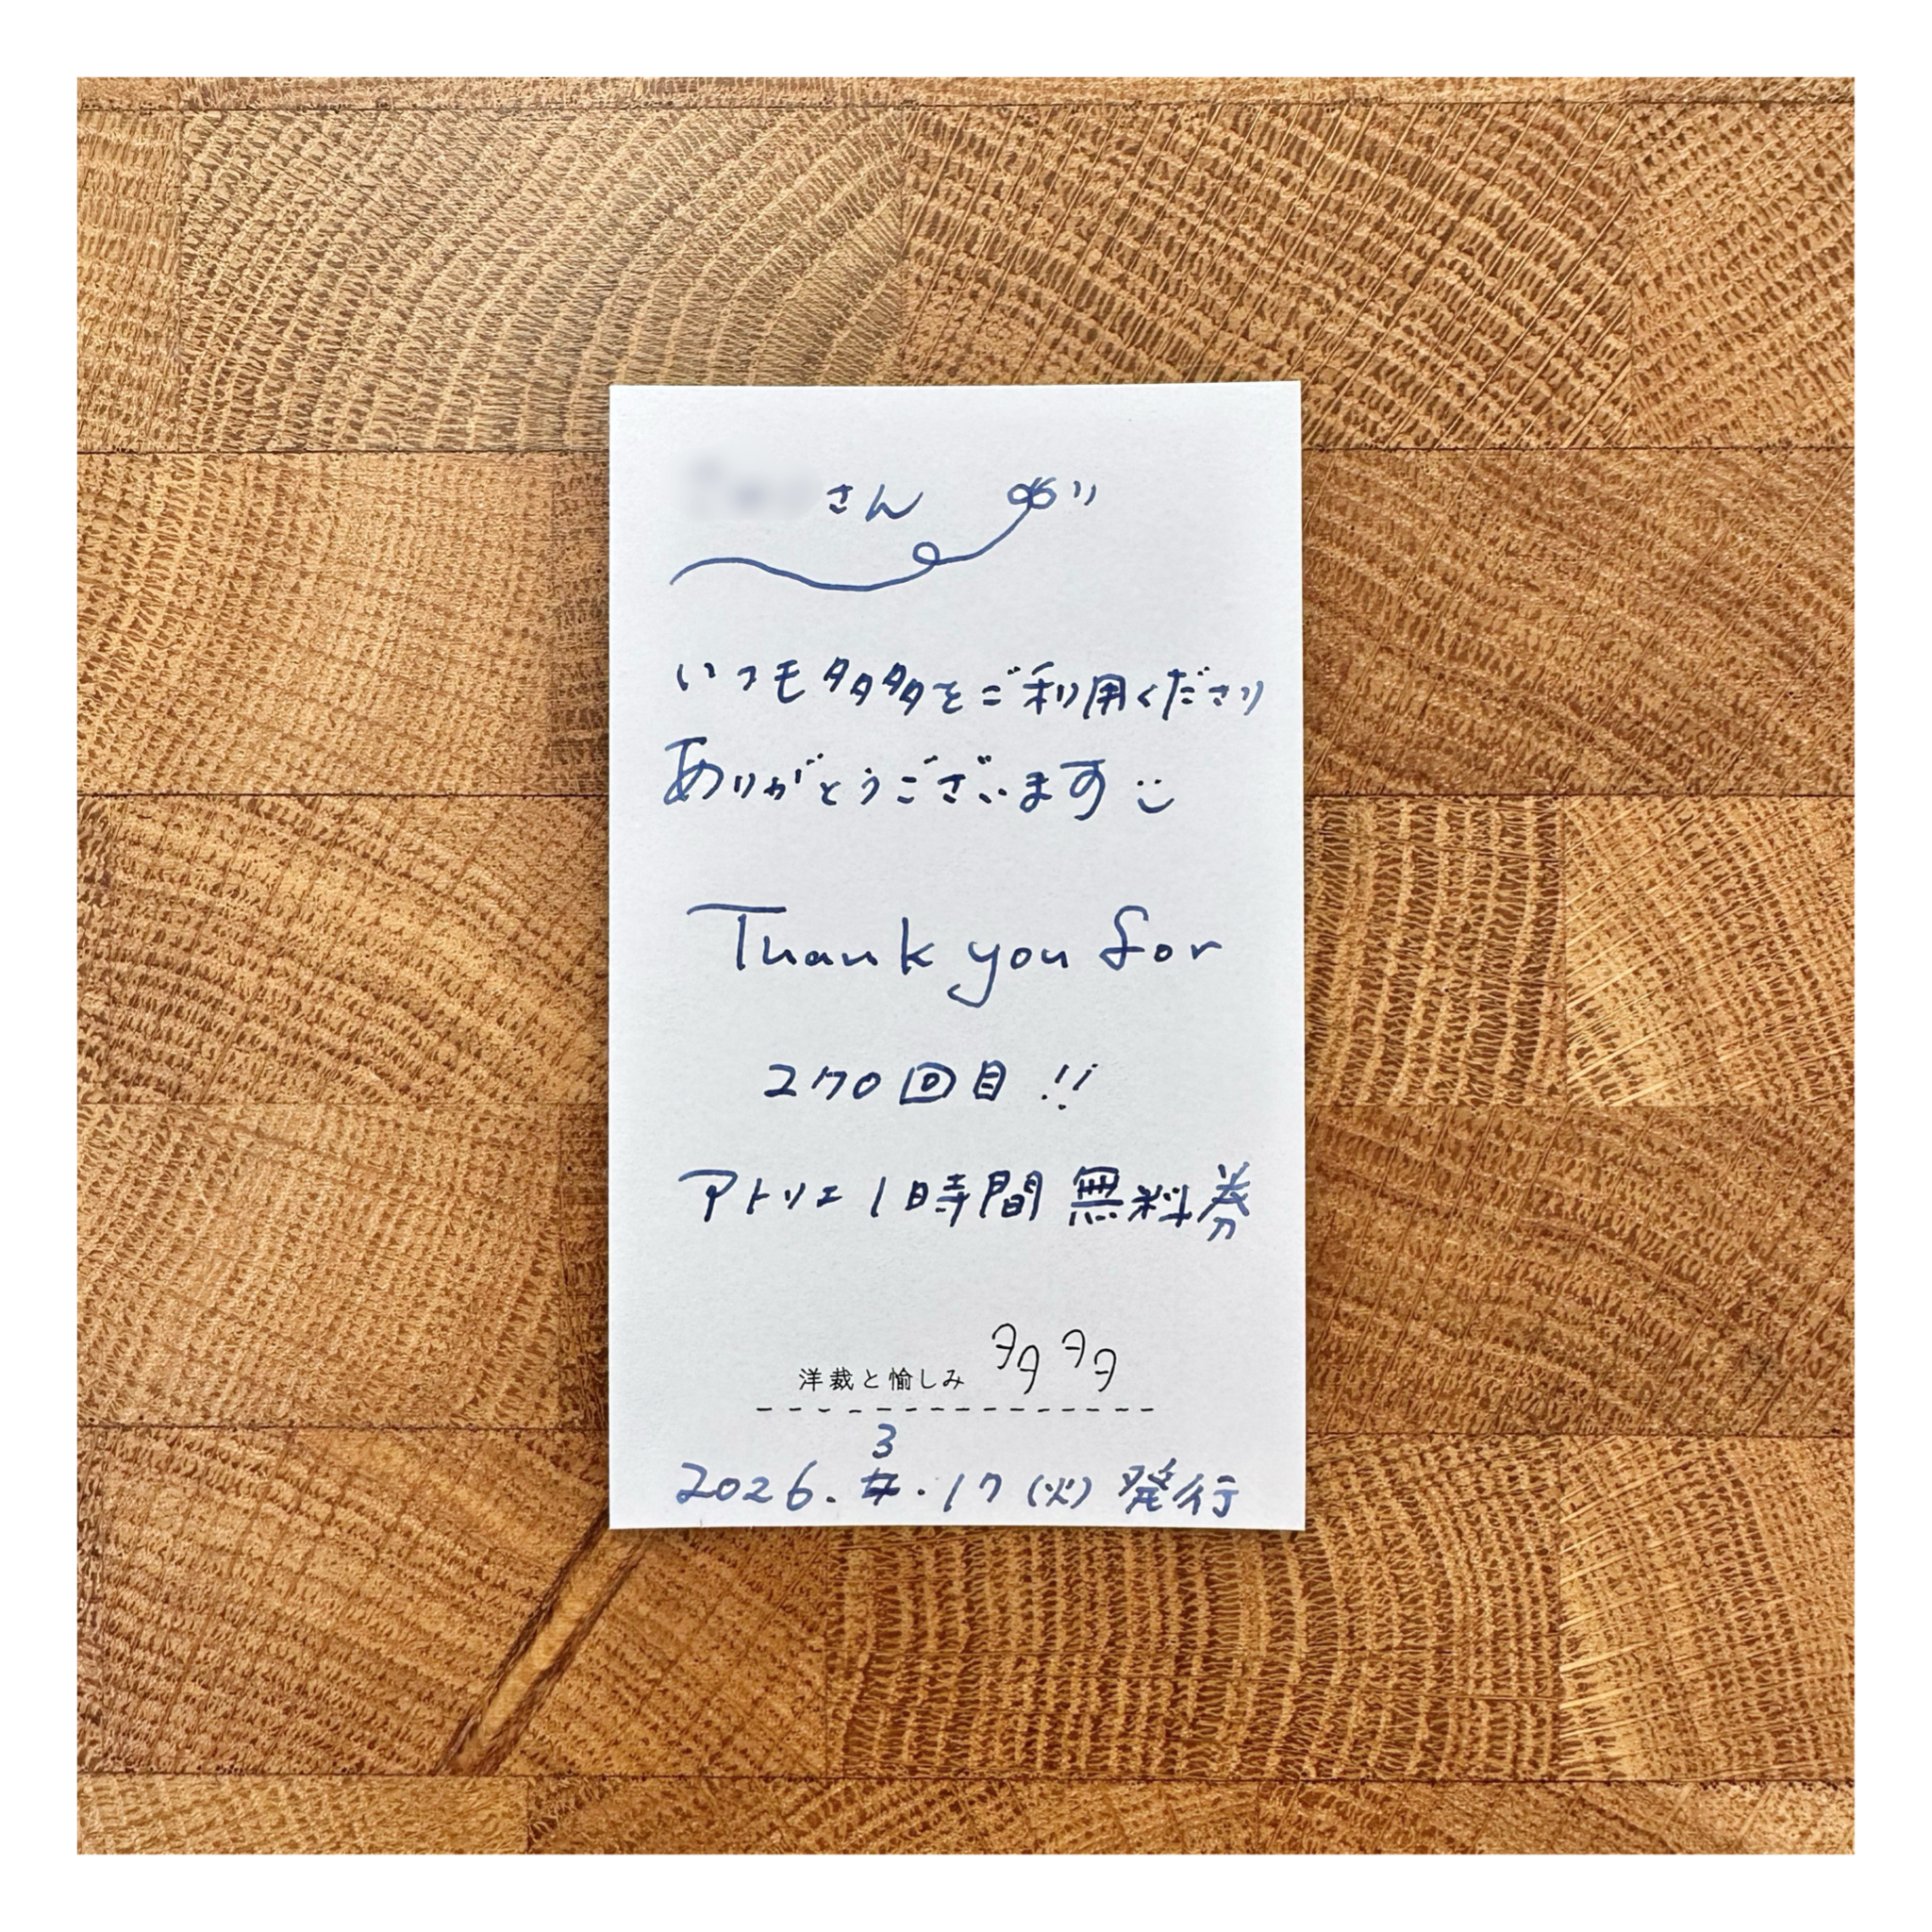 さん
いつも多多をご利用くださり
ありがとうございます
Thank you for
270回目!!
アトリエ1時間 無料券
洋裁と愉しみ 多多
3
2026. .17(火)発行